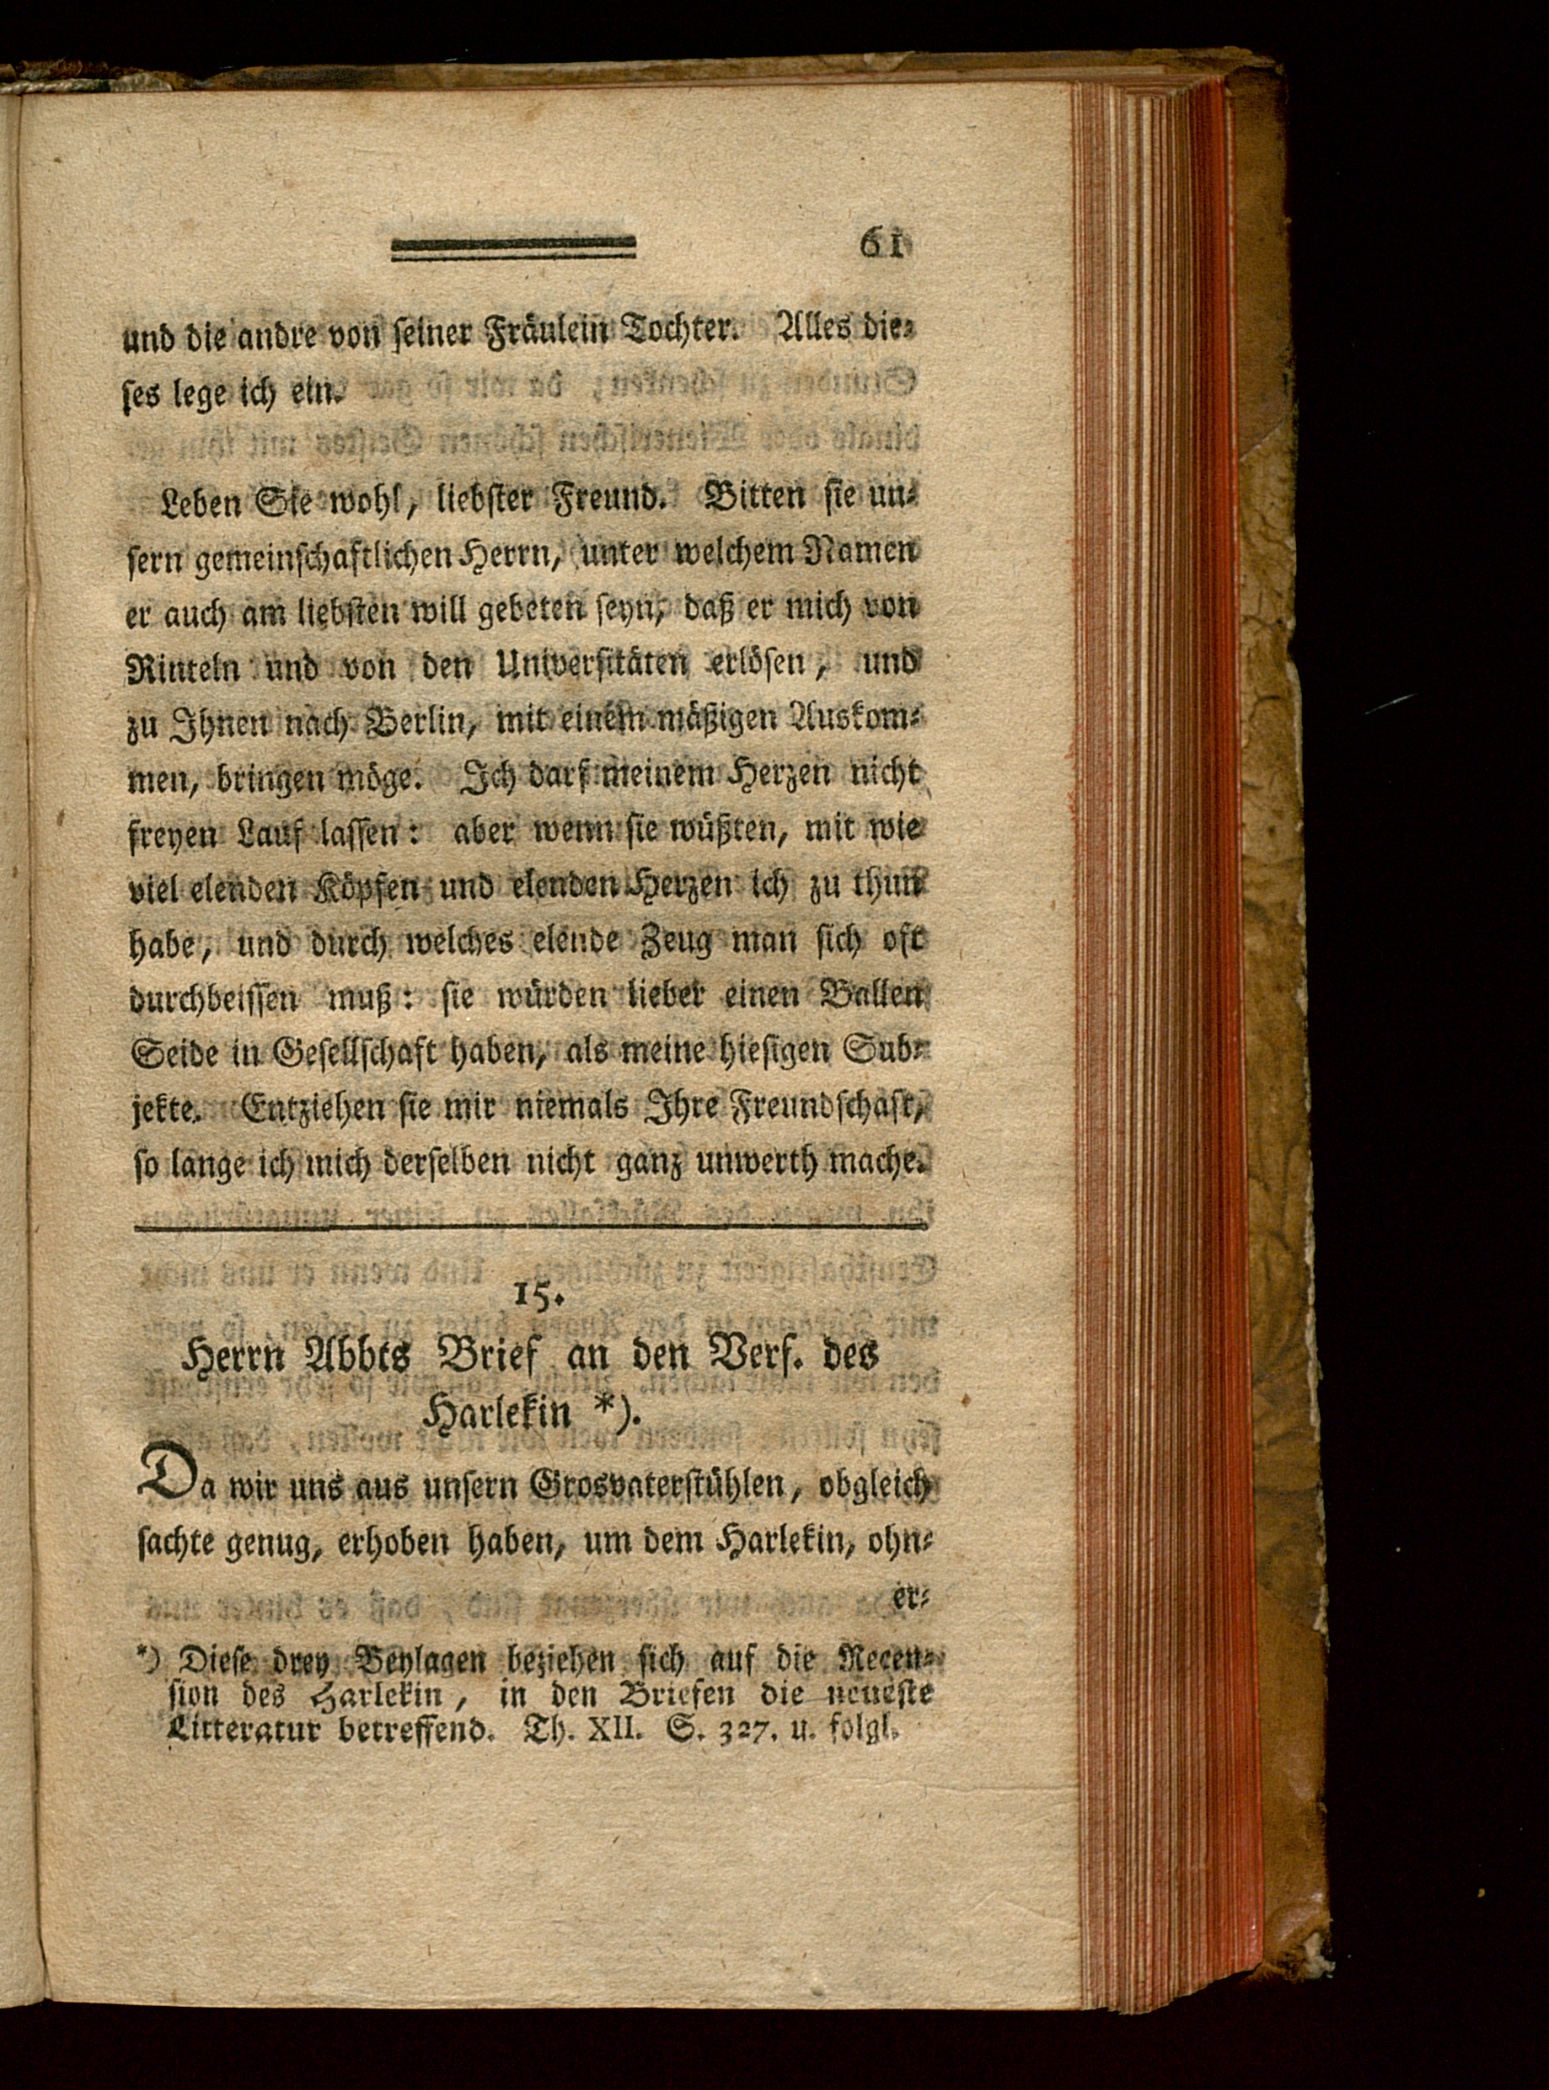 61
und die andre von seiner Fräulein Tochter. Alles die-
ses lege ich ein.
Leben Sie wohl, liebster Freund. Bitten sie un-
sern gemeinschaftlichen Herrn, unter welchem Namen
er auch am liebsten will gebeten seyn, daß er mich von
Rinteln und von den Universitäten erlösen, und
zu Ihnen nach Berlin, mit einem mäßigen Auskom-
men, bringen möge. Ich darf meinem Herzen nicht
freyen Lauf lassen: aber wenn sie wüßten, mit wie
viel elenden Köpfen und elenden Herzen ich zu thun
habe, und durch welches elende Zeug man sich oft
durchbeissen muß: sie würden lieber einen Ballen
Seide in Gesellschaft haben, als meine hiesigen Sub-
jekte. Entziehen sie mir niemals Ihre Freundschaft,
so lange ich mich derselben nicht ganz unwerth mache.
15.
Herrn Abbts Brief an den Verf. des
Harlekin *).
Da wir uns aus unsern Grosvaterstühlen, obgleich
sachte genug, erhoben haben, um dem Harlekin, ohn-
er-
*) Diese drey Beylagen beziehen sich auf die Recen-
sion des Harlekin, in den Briefen die neueste
Litteratur betreffend. Th. XII. S. 327. u. folgl.